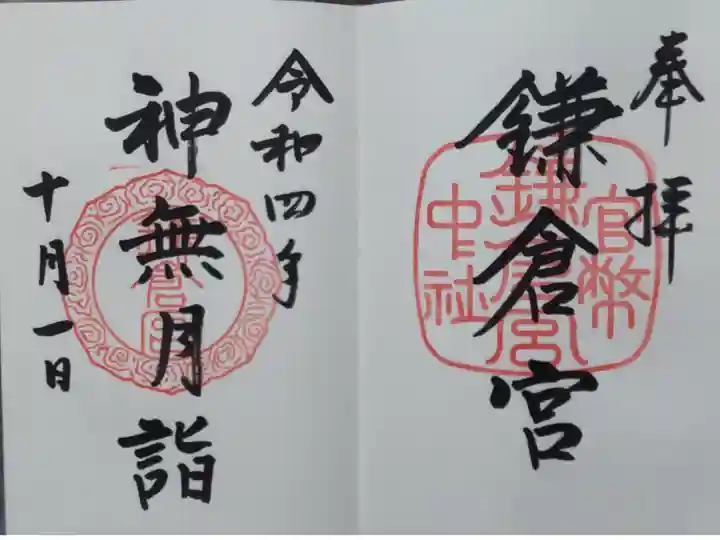 奉拝
官幣
鎌倉宮
鎌倉宮
中社
令和四年
神無月詣
十月一日